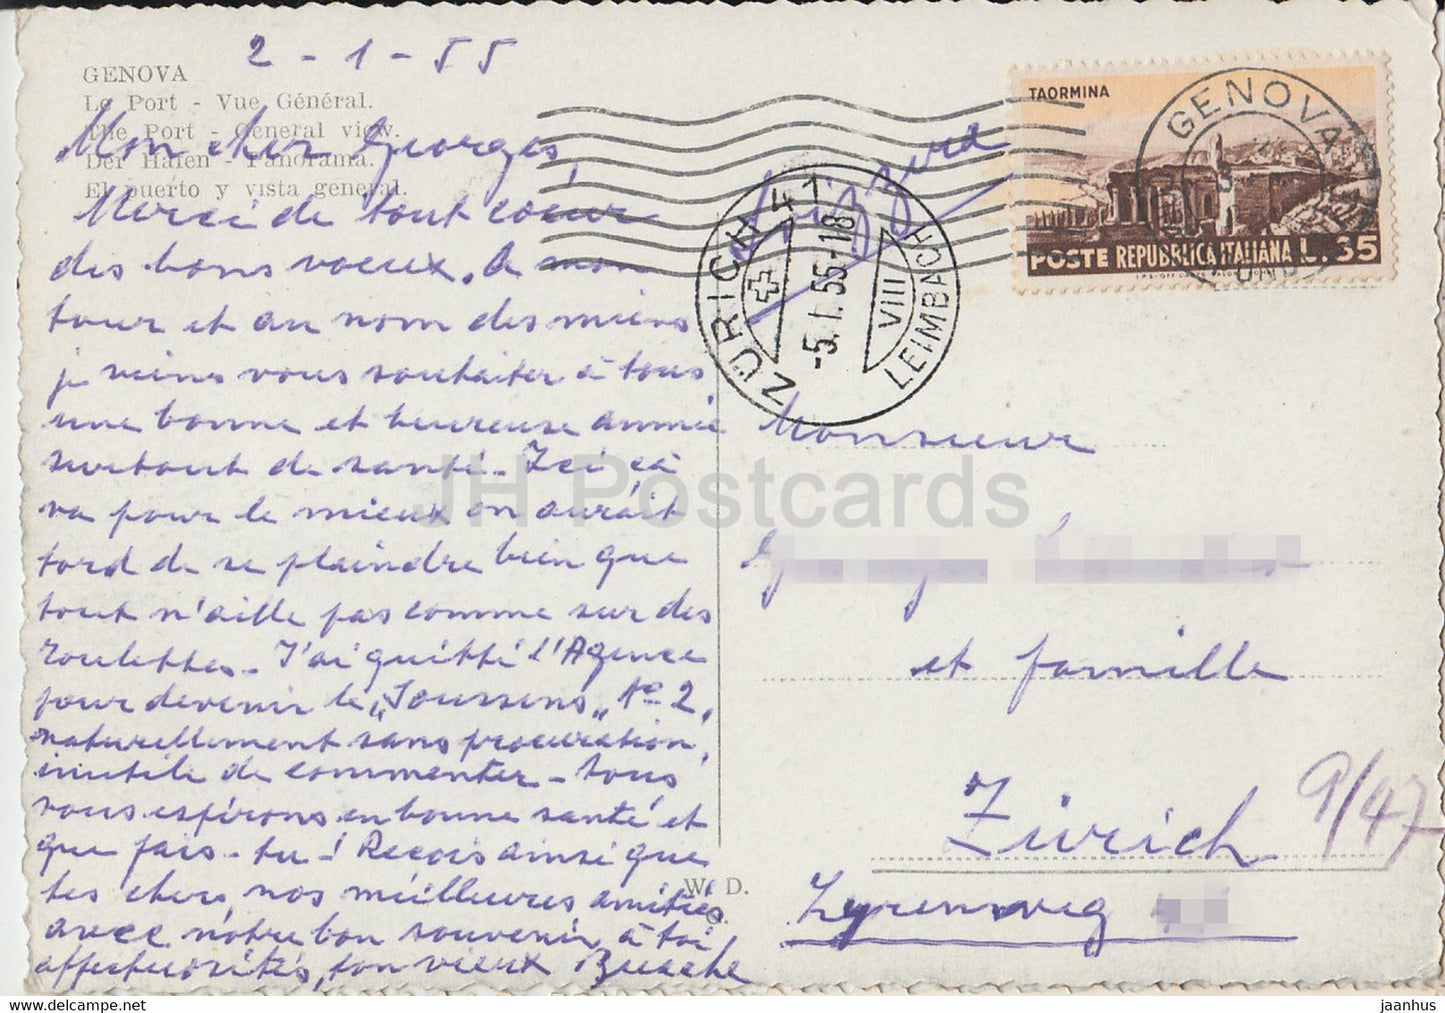 2 - 1 - 55
GENOVA
Le Port - Vue Général.
The Port - General view.
Der Hafen - Panorama.
El puerto y vista general.
Mon cher Georges,
Merci de tout coeur
des bons voeux. A mon
tour et au nom des miens
je viens vous souhaiter à tous
une bonne et heureuse année
surtout de santé. Ici, çà
va pour le mieux on aurait
tord de se plaindre bien que
tout n'aille pas comme sur des
roulettes. J'ai quitté l'Agence
pour devenir le „Joussens„ No 2,
naturellement sans procuration,
inutile de commenter. Tous
vous espérons en bonne santé et
que fais-tu-! Reçois ainsi que
tes chers, nos meilleures amitiés
avec notre bon souvenir, à toi
affectuosités, ton vieux
W. D.
TAORMINA
POSTE REPUBBLICA ITALIANA L. 35
GENOVA
ZÜRICH 41
-5.I.55-18
VIII
LEIMBACH
Svizzera
Monsieur
et famille
Zürich
9/47
JH Postcards
jaanhus